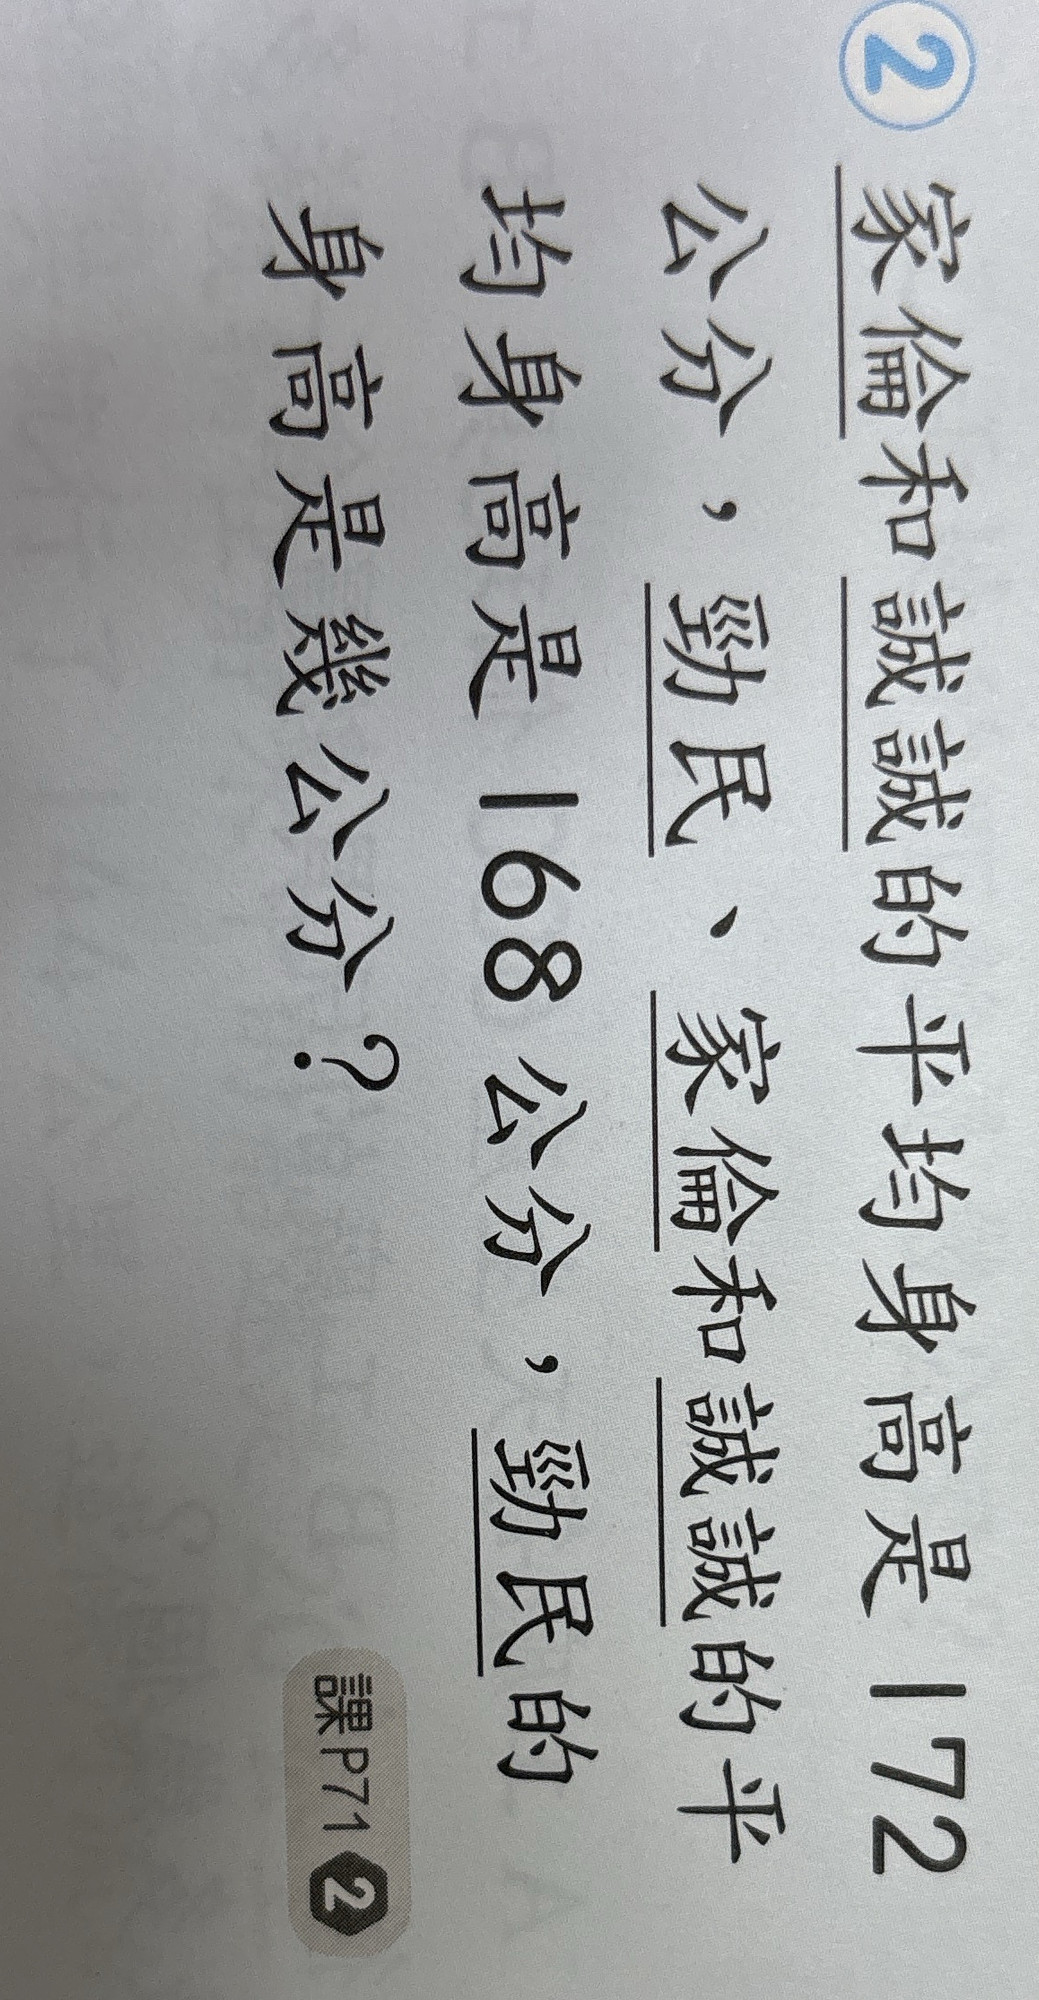 ② 家倫和誠誠的平均身高是 172
公分，勁民、家倫和誠誠的平
均身高是 168 公分，勁民的
身高是幾公分？
課P71 2